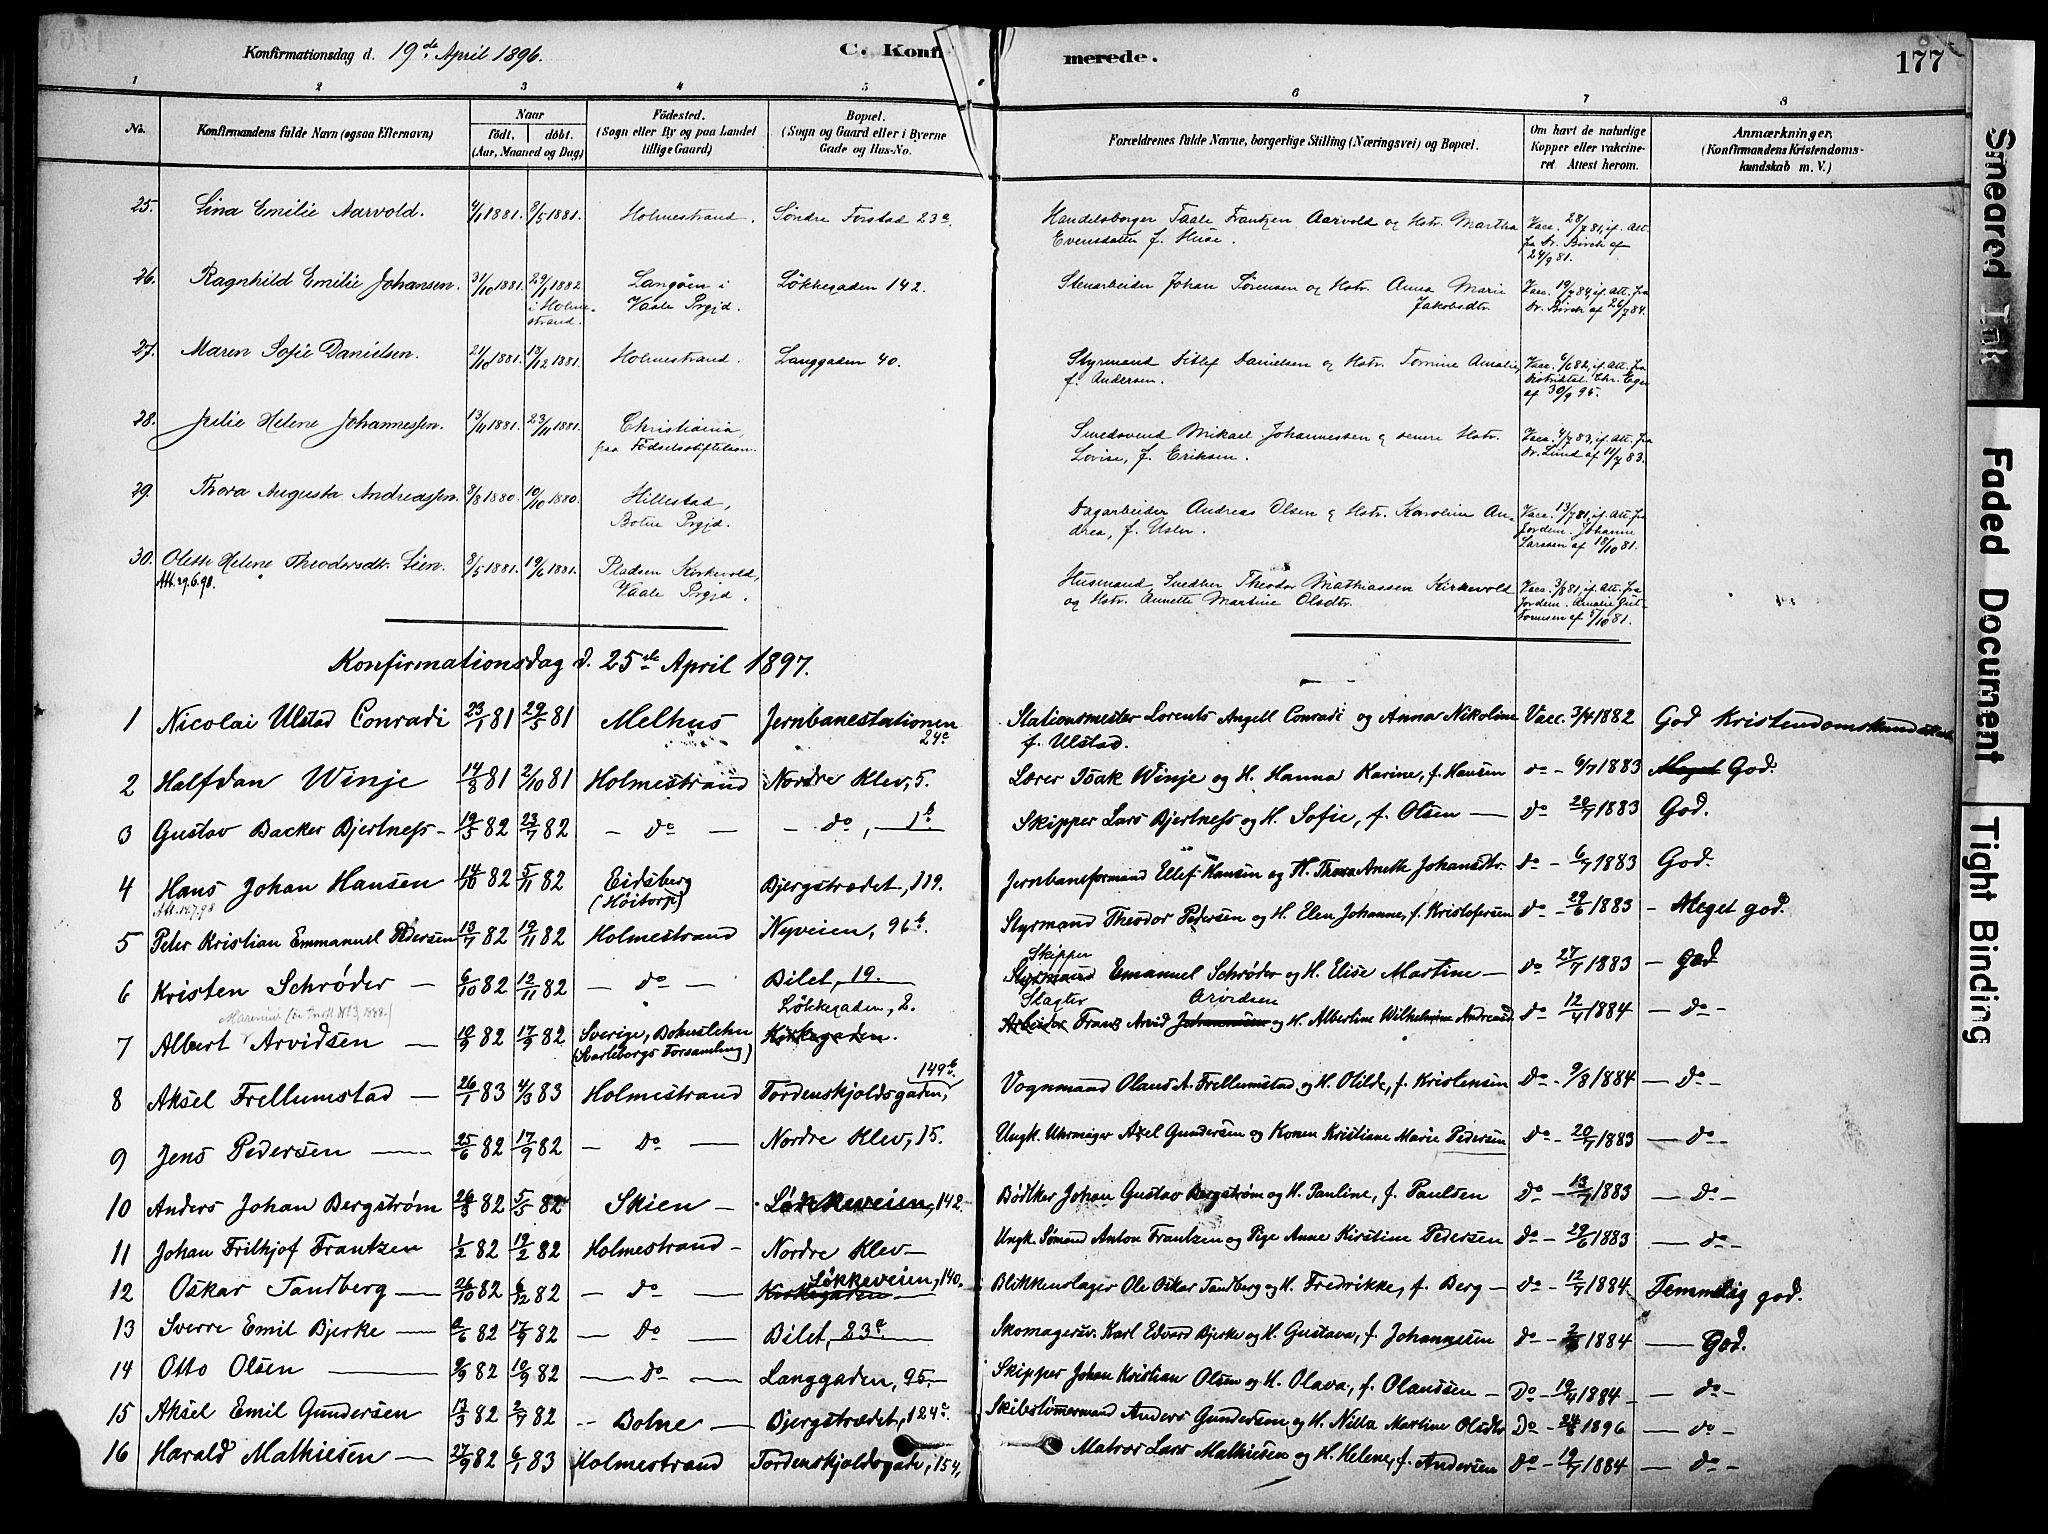 Konfirmationsdag d. 19de April 1896.
C. Konfirmerede.
177
1 2 3 4 5 6 7 8
No. Konfirmandens fulde Navn (ogsaa Efternavn) Naar født. døbt. (Aar, Maaned og Dag) Fødested. (Sogn eller By og paa Landet tillige Gaard) Bopæl. (Sogn og Gaard eller i Byerne Gade og Hus-No. Forældrenes fulde Navne, borgerlige Stilling (Næringsvei) og Bopæl. Om havt de naturlige Kopper eller vakcineret Attest herom. Anmærkninger, (Konfirmandens Kristendomskundskab m. V.)
25. Lina Emilie Aarvold. 4/1 1881. 8/5 1881. Holmestrand. Søndre Torstad 23a Handelsborger Taale Frantzen Aarvold og Hstr. Martha Evensdatter f. Huse. Vacc. 28/7 81, if. Att. fra Dr. Birch af 24/9 81.
26. Ragnhild Emilie Johansen. 31/10 1881. 29/1 1882 i Holmestrand. Langøen i Vaale Prgjd. Løkkegaden 142. Stenarbeider Johan Sørensen og Hstr. Anna Marie Jakobsdtr. Vacc. 19/7 84, if. Att. fra Dr. Birch af 26/7 84.
27. Maren Sofie Danielsen. 21/10 1881. 18/12 1881. Holmestrand. Langgaden 40. Styrmand Ditlef Danielsen og Hstr. Tomine Amalie, f. Andersen. Vacc. 6/6 82, if. Att. fra Distriktsl. Chr. Eger af 30/9 95.
28. Julie Helene Johannessen. 13/11 1881. 23/11 1881. Christiania, paa Fødselsstiftelsen. Smedsvend Mikael Johannessen og senere Hstr. Lovise, f. Eriksen. Vacc. 4/7 83, if. Att. fra Dr. Lund af 11/7 83.
29. Thora Augusta Andreassen. 8/8 1880. 10/10 1880. Hillestad, Botne Prgjd. Dagarbeider Andreas Olsen og Hstr. Karoline Andrea, f. Olsen. Vacc. 13/7 81, if. Att. fra Jordem. Johanne Larssen af 18/10 81.
30. Olette Helene Theodorsdtr. Lien. 8/5 1881. 19/6 1881. Pladsen Kirkevold, Vaale Prgjd. Husmand Snedker Theodor Mathiassen Kirkevold og Hstr. Annette Martine Olsdtr. Vacc. 3/8 81, if. Att. fra Jordem. Amalie Guttormsen af 5/10 81.
Att. 29.6.98.
Konfirmationsdag d. 25de April 1897.
1 Nicolai Ulstad Conradi 23/1 81 29/5 81 Melhus Jernbanestationen 24a Stationsmester Lorents Angell Conradi og Anna Nikoline f. Ulstad. Vacc. 3/4 1882 God Kristendomskundskab
2 Halfdan Winje 14/8 81 2/10 81 Holmestrand Nordre Klev, 5. Lærer Isak Winje og H. Hanna Karine, f. Hansen do - 6/7 1883 Meget God.
3 Gustav Backer Bjertness - 19/5 82 23/7 82 - do - - do, 1b. Skipper Lars Bjertness og H. Sofie, f. Olsen - do - 20/7 1883 God.
4 Hans Johan Hansen 14/10 82 5/11 82 Eidsberg (Høitorp) Bjergstrædet, 119. Jernbaneformand Ellef Hansen og H. Thora Anette Johansdtr. do - 6/7 1883 God.
Att. 14.7.98
5 Peter Kristian Emmanuel Pedersen 13/7 82 19/11 82 Holmestrand Nyveien, 96b. Styrmand Theodor Pedersen og H. Elen Johanne, f. Kristofersen do - 29/6 1883 - Meget god.
6 Kristen Schrøder - 6/10 82 12/11 82 - do - Bilet, 19. Skipper Styrmand Emanuel Schrøder og H. Elise Martine - do - 27/7 1883 - god
7 Albert Arvidsen - 19/9 82 17/9 82 Sverige, Bohuslehn Løkkegaden, 2. Kirkegaden. Slagter Arbeider Frans Arvid Johannesen Arvidsen og H. Albertine Wilhelmine do - 12/4 1884 - do -
8 Aksel Frellumstad - 26/1 83 4/3 83 Holmestrand Tordenskjoldsgaden, 149b Vognmand Olaus A. Frellumstad og H. Otilde, f. Kristensen do - 9/8 1884 - do -
9 Jens Pedersen - 25/6 82 17/9 82 - do - Nordre Klev, 15. Ungk. Uhrmager Axel Gundersen og Konen Kristiane Marie Pedersen do - 20/7 1883 - do -
10 Anders Johan Bergstrøm 26/3 82 5/5 82 Skien - Løkkeveien, 142 - Bødtker Johan Gustav Bergstrøm og H. Pauline, f. Paulsen do - 13/7 1883 - do -
11 Johan Frithjof Frantzen 1/2 82 19/2 82 Holmestrand - Nordre Klev - Ungk. Sømand Anton Frantzen og Pige Anne Kirstine Pedersen do - 29/6 1883 - do -
12 Oskar Tandberg - 26/10 82 6/12 82 - do - Løkkeveien, 140. Kirkegaden Blikkenslager Ole Oskar Tandberg og H. Fredrikke, f. Berg - do - 12/7 1884. Temmelig god.
13 Sverre Emil Bjerke - 2/6 82 17/9 82 - do - Bilet, 23a. Skomagersv. Karl Edvard Bjerke og H. Gustava, f. Johannesen do - 1884 - God.
14 Otto Olsen - 9/9 82 19/9 82 - do - Langgaden, 95. - Skipper Johan Kristian Olsen og H. Olava, f. Olaussen - do - 19/4 1884 - do -
15 Aksel Emil Gundersen 17/3 82 2/7 82 - Botne - Bjergstrædet, 124a. Skibstømmermand Anders Gundersen og H. Nilla Martine Olsdtr do - 24/8 1896 - do -
16 Harald Mathiesen 27/9 82 6/1 83 Holmestrand Tordenskjoldsgade, 154, Matros Lars Mathiesen og H. Helene, f. Andersen do - 19/7 1884 - do -
Smeared Ink
Faded Document
Tight Binding